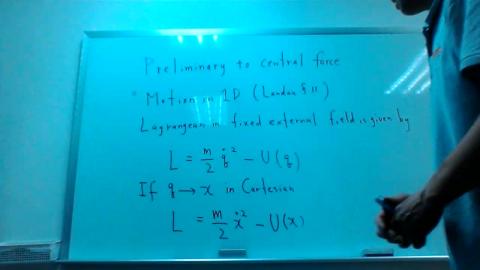 Preliminary to central force
Motion in 1D (Landau § 11)
Lagrangean in fixed external field is given by
L = m/2 q̇² - U(q)
If q → x in Cartesian
L = m/2 ẋ² - U(x)